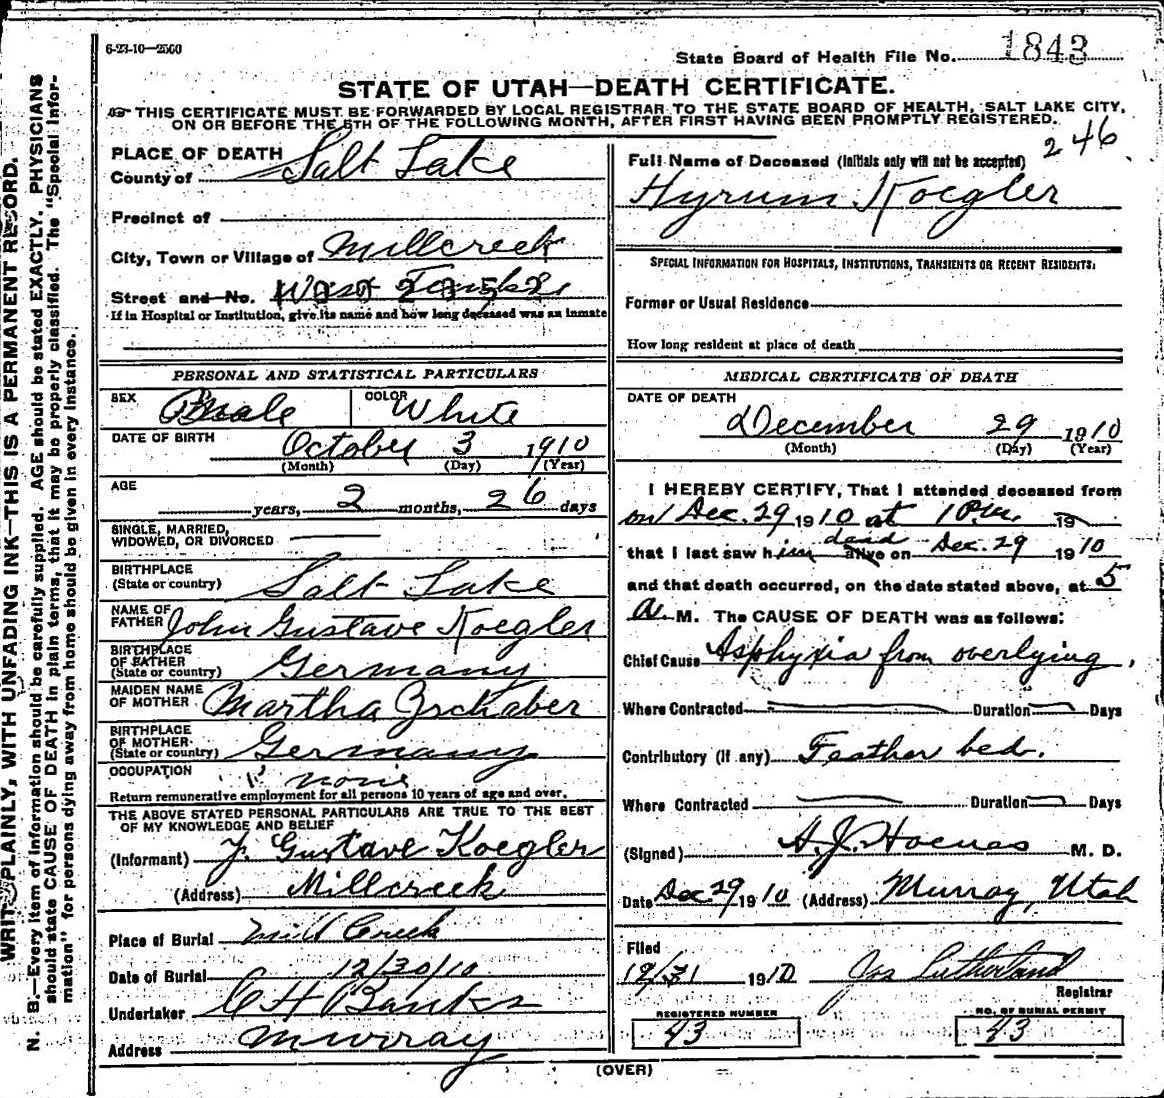 6-23-10—2500
State Board of Health File No. 1843
STATE OF UTAH—DEATH CERTIFICATE.
THIS CERTIFICATE MUST BE FORWARDED BY LOCAL REGISTRAR TO THE STATE BOARD OF HEALTH, SALT LAKE CITY,
ON OR BEFORE THE 5TH OF THE FOLLOWING MONTH, AFTER FIRST HAVING BEEN PROMPTLY REGISTERED.
246
WRITE PLAINLY, WITH UNFADING INK—THIS IS A PERMANENT RECORD.
N. B.—Every item of information should be carefully supplied. AGE should be stated EXACTLY. PHYSICIANS
should state CAUSE OF DEATH in plain terms, that it may be properly classified. The "Special Infor-
mation" for persons dying away from home should be given in every instance.
PLACE OF DEATH
County of Salt Lake
Precinct of
City, Town or Village of Millcreek
Street and No.
If in Hospital or Institution, give its name and how long deceased was an inmate
PERSONAL AND STATISTICAL PARTICULARS
SEX Male COLOR White
DATE OF BIRTH October 3 1910
(Month) (Day) (Year)
AGE
years, 2 months, 26 days
SINGLE, MARRIED,
WIDOWED, OR DIVORCED
BIRTHPLACE
(State or country) Salt Lake
NAME OF
FATHER John Gustave Koegler
BIRTHPLACE
OF FATHER
(State or country) Germany
MAIDEN NAME
OF MOTHER Martha Zschaber
BIRTHPLACE
OF MOTHER
(State or country) Germany
OCCUPATION none
Return remunerative employment for all persons 10 years of age and over.
THE ABOVE STATED PERSONAL PARTICULARS ARE TRUE TO THE BEST
OF MY KNOWLEDGE AND BELIEF
(Informant) J. Gustave Koegler
(Address) Millcreek
Place of Burial Mill Creek
Date of Burial 12/30/10
Undertaker C H Banks
Address Murray
Full Name of Deceased (Initials only will not be accepted)
Hyrum Koegler
SPECIAL INFORMATION FOR HOSPITALS, INSTITUTIONS, TRANSIENTS OR RECENT RESIDENTS:
Former or Usual Residence
How long resident at place of death
MEDICAL CERTIFICATE OF DEATH
DATE OF DEATH
December 29 1910
(Month) (Day) (Year)
I HEREBY CERTIFY, That I attended deceased from
on Dec. 29 1910 at 1 P.M. 19
that I last saw him dead alive on Dec. 29 1910
and that death occurred, on the date stated above, at 5
a. M. The CAUSE OF DEATH was as follows:
Chief Cause Asphyxia from overlying,
Where Contracted Duration Days
Contributory (if any) Feather bed.
Where Contracted Duration Days
(Signed) M. D.
Date Dec 29 1910 (Address) Murray, Utah
Filed
12/31 1910 Jos Sutherland
Registrar
REGISTERED NUMBER
43
NO. OF BURIAL PERMIT
43
(OVER)